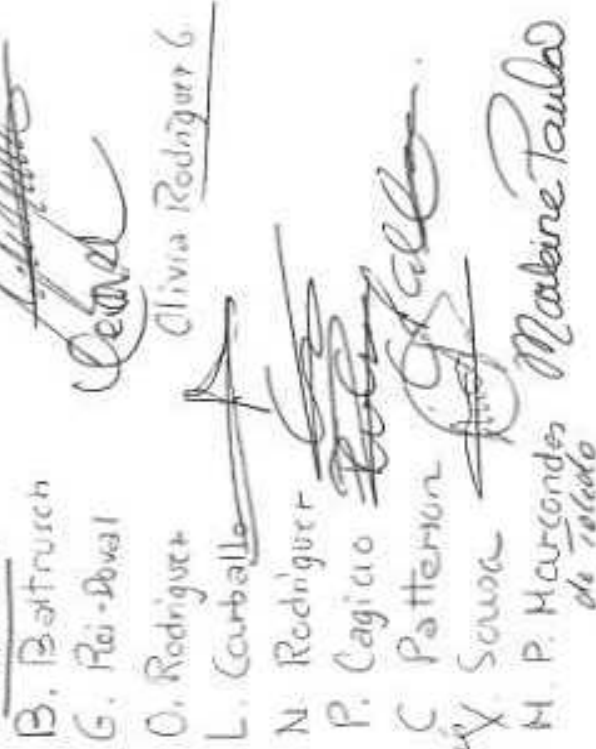 B. Baltrusch
G. Rei-Doval
O. Rodriguez Olivia Rodriguez G.
L. Carballo
N. Rodriguez
P. Cagiao
C Patterson
X. Sousa
M. P. Marcondes Marleine Paula
de Toledo